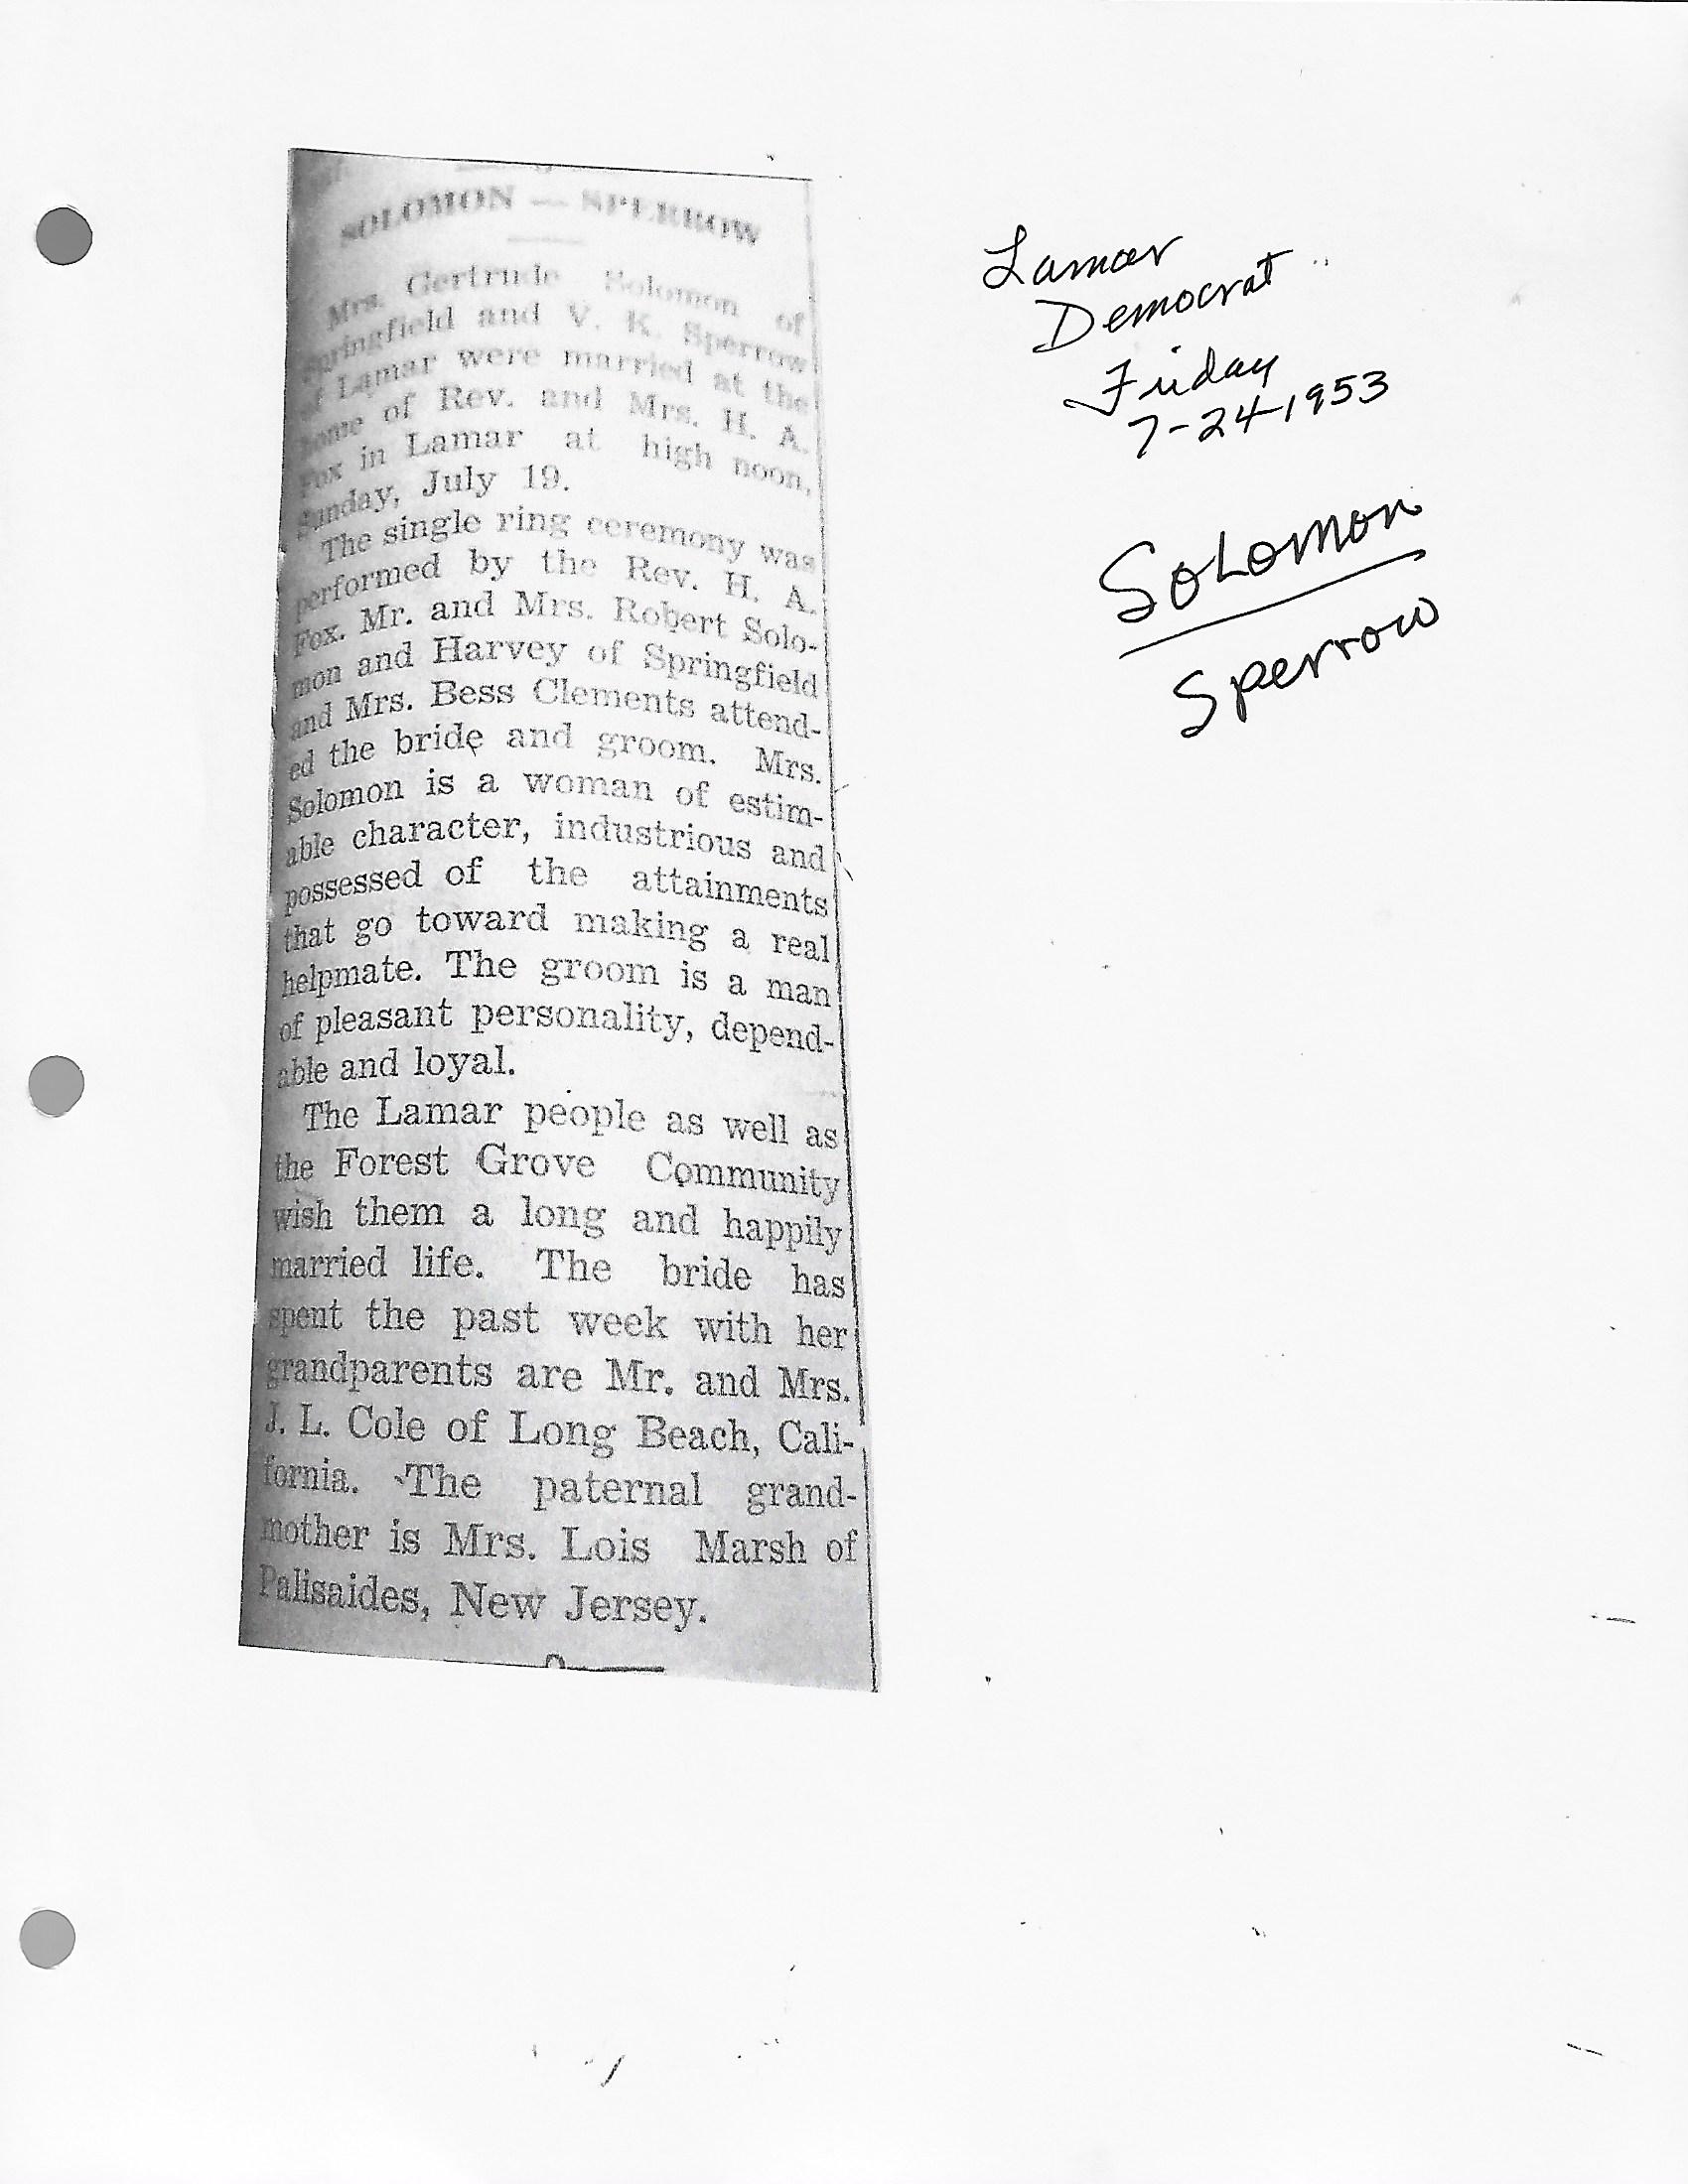 SOLOMON — SPERROW
Mrs. Gertrude Solomon of
Springfield and V. K. Sperrow
of Lamar were married at the
home of Rev. and Mrs. H. A.
Fox in Lamar at high noon,
Sunday, July 19.
The single ring ceremony was
performed by the Rev. H. A.
Fox. Mr. and Mrs. Robert Solo-
mon and Harvey of Springfield
and Mrs. Bess Clements attend-
ed the bride and groom. Mrs.
Solomon is a woman of estim-
able character, industrious and
possessed of the attainments
that go toward making a real
helpmate. The groom is a man
of pleasant personality, depend-
able and loyal.
The Lamar people as well as
the Forest Grove Community
wish them a long and happily
married life. The bride has
spent the past week with her
grandparents are Mr. and Mrs.
J. L. Cole of Long Beach, Cali-
fornia. The paternal grand-
mother is Mrs. Lois Marsh of
Palisaides, New Jersey.
Lamar
Democrat
Friday
7-24-1953
Solomon
Sperrow